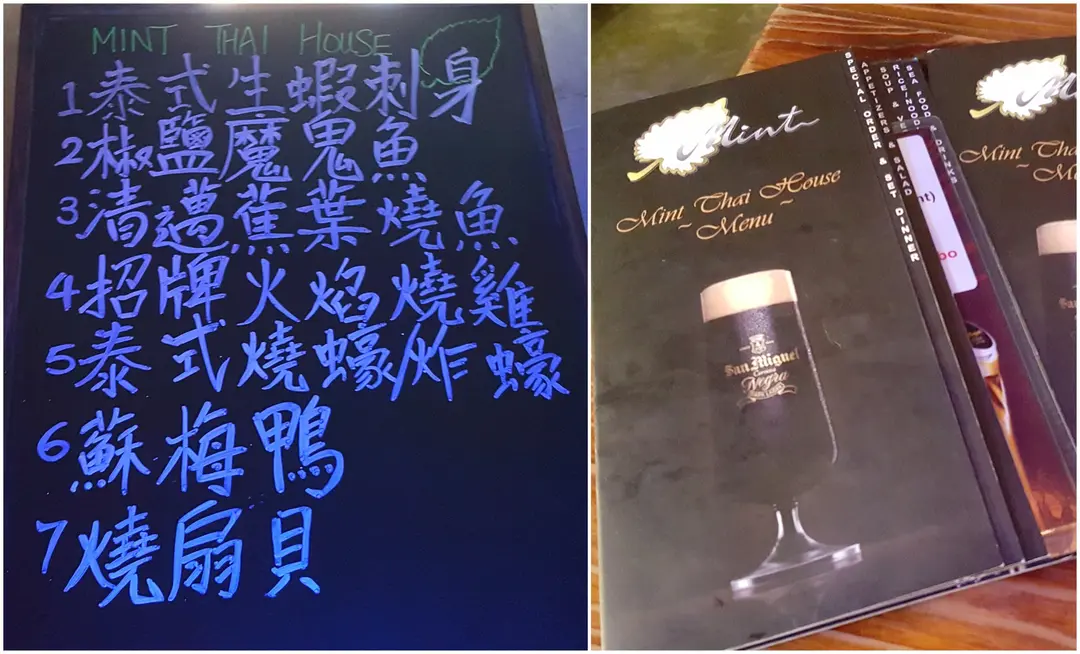 MINT THAI HOUSE
1 泰式生蝦刺身
2 椒鹽魔鬼魚
3 清邁蕉葉燒魚
4 招牌火焰燒雞
5 泰式燒蠔/炸蠔
6 蘇梅鴨
7 燒扇貝
Mint
Mint Thai House
~ Menu ~
San Miguel
Negra
SPECIAL ORDER & SET DINNER
APPETIZERS & SALAD
SOUP & VE
RICE/NOOD
SEA FOOD
& DRINKS
Mint Tha